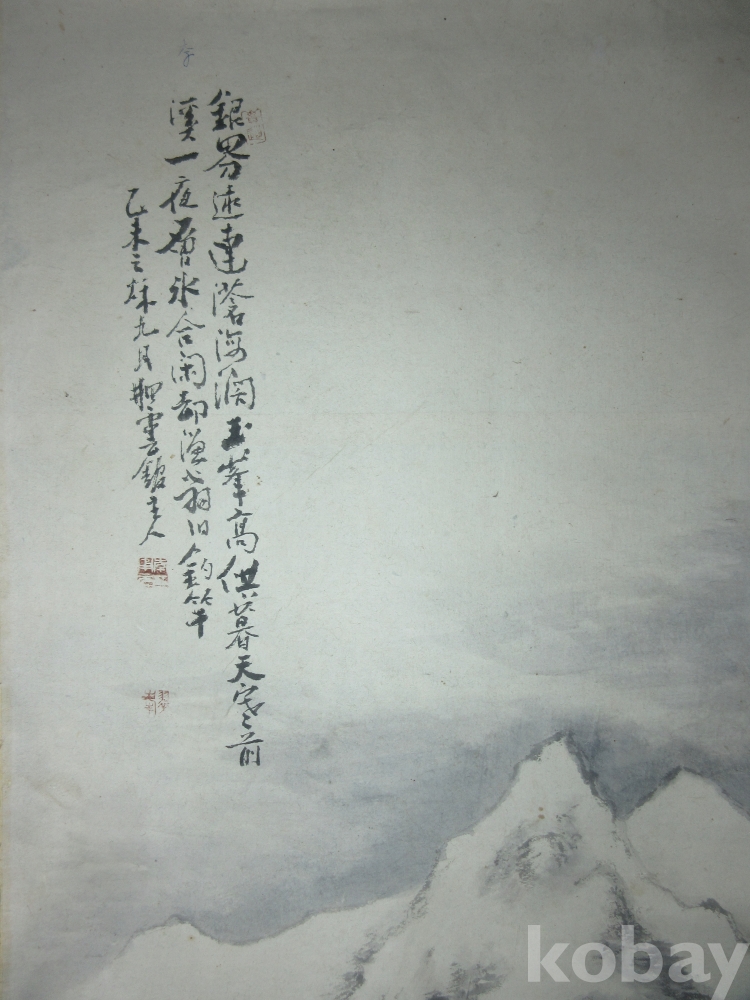 銀界遠連滄海濶玉峯高供暮天寒前
溪一夜層氷合閑却漁翁旧釣竿
乙未之秋九月雲館主人
kobay